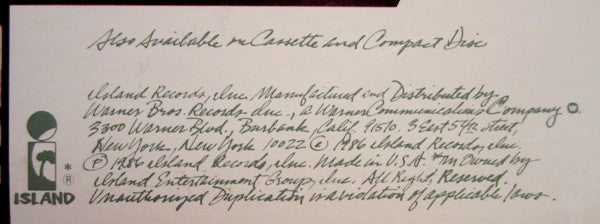 Also Available on Cassette and Compact Disc
Island Records, Inc. Manufactured and Distributed by
Warner Bros. Records Inc., a Warner Communications Company W
3300 Warner Blvd., Burbank, Calif. 91510. 3 East 54th Street,
New York, New York 10022 © 1986 Island Records, Inc.
℗ 1986 Island Records, Inc. Made in U.S.A. *TM Owned by
Island Entertainment Group, Inc. All Rights Reserved.
Unauthorized Duplication is a violation of applicable laws.
* ®
ISLAND